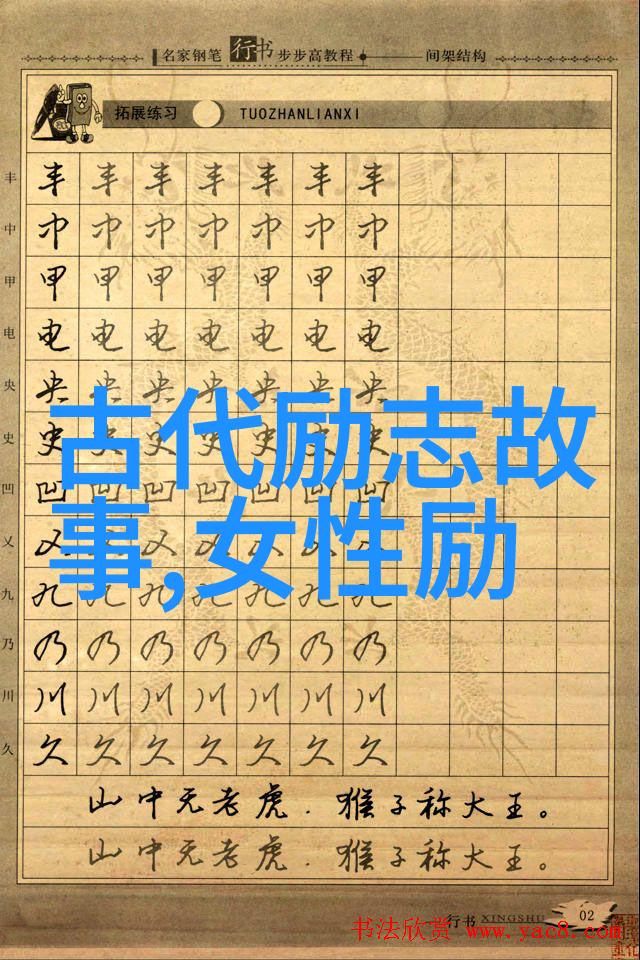 名家钢笔 行书 步步高教程 间架结构
拓展练习 TUOZHANLIANXI
丰 丰 丰 丰 丰 丰 丰 丰
中 中 中 中 中 中 中 中
甲 甲 甲 甲 甲 甲 甲 甲
电 电 电 电 电 电 电 电
央 央 央 央 央 央 央 央
史 史 史 史 史 史 史 史
古代励志故
凹 凹 凹 凹 凹 凹 凹 凹
乂 乂 乂 乂 乂 乂 乂 乂
事,女性励
九 九 九 九 九 九 九 九
乃 乃 乃 乃 乃 乃 乃 乃
川 川 川 川 川 川 川 川
久 久 久 久 久 久 久 久
山中无老虎．猴子称大王。
山中无老虎．猴子称大王。
行书 XINGSHU 02
书法欣赏 www.yac8.com